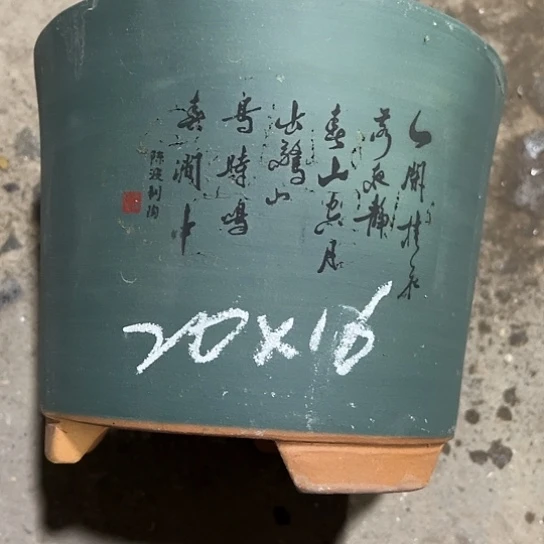 人閑桂花
落夜静
春山空月
出驚山
鳥時鳴
春澗中
制陶
20×16